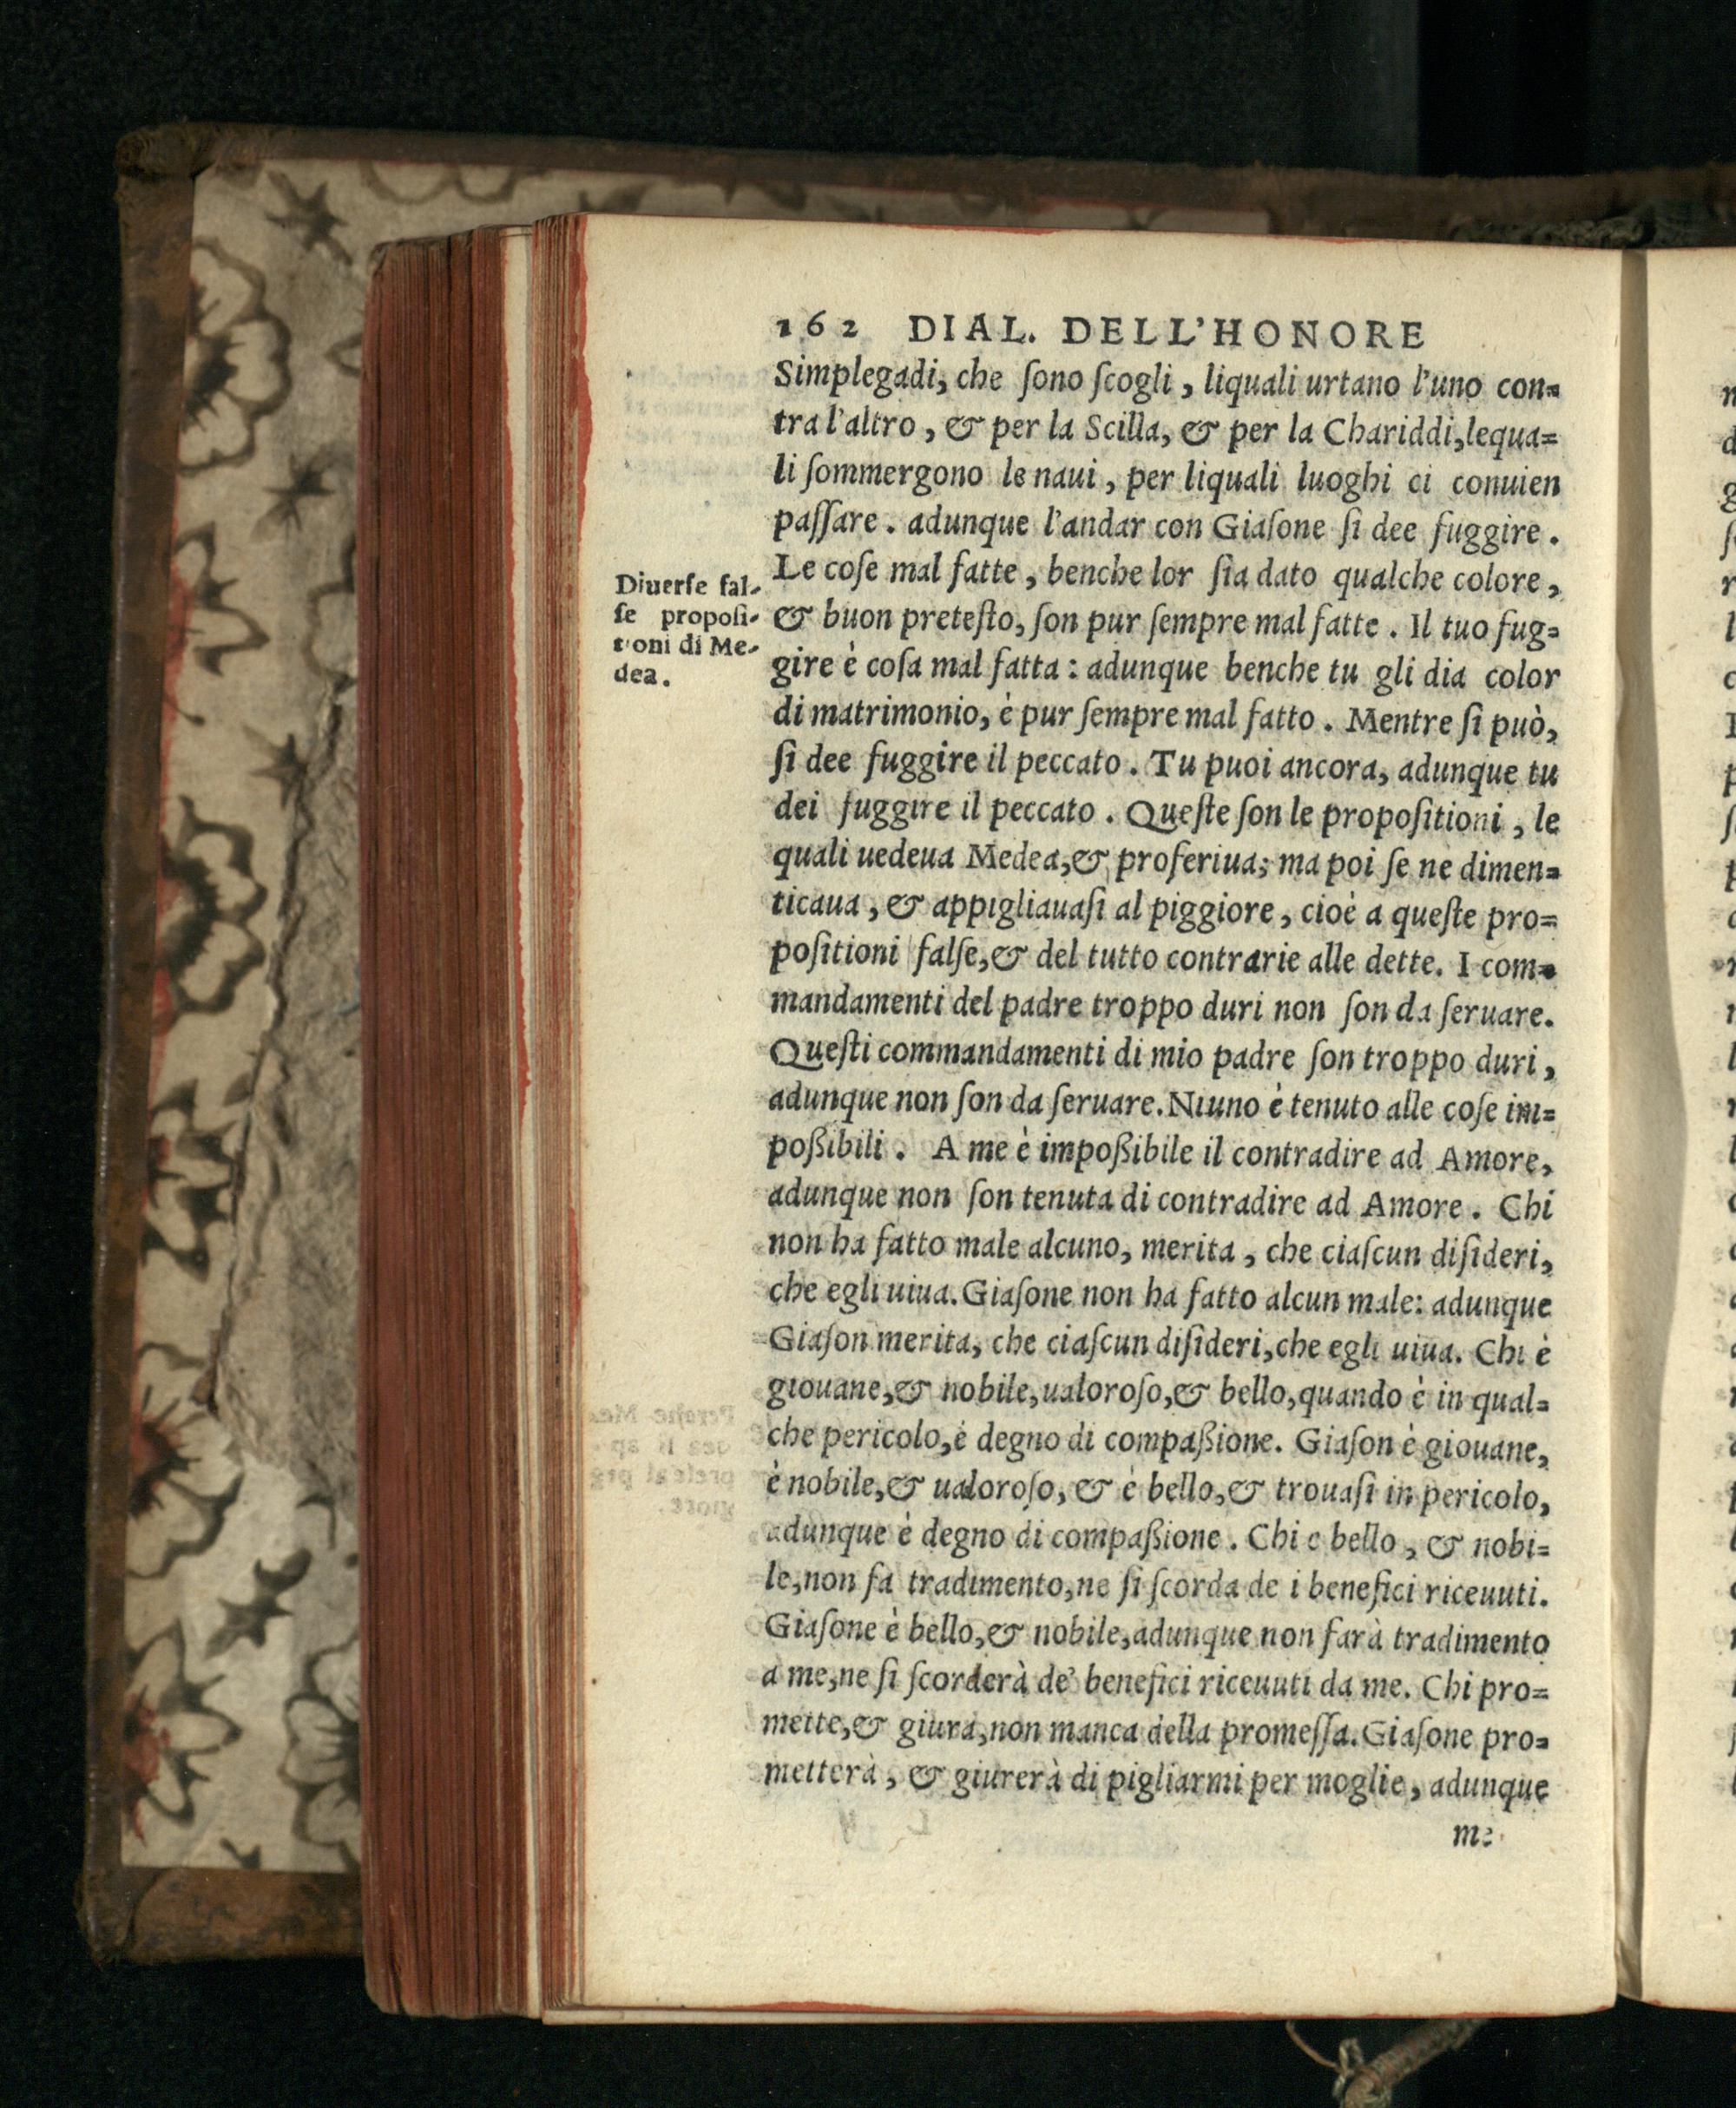 162 DIAL. DELL'HONORE
Simplegadi, che ſono ſcogli, liquali urtano l'uno con=
tra l'altro, & per la Scilla, & per la Chariddi, lequa=
li ſommergono le naui, per liquali luoghi ci conuien
paſſare. adunque l'andar con Giaſone ſi dee fuggire.
Le coſe mal fatte, benche lor ſia dato qualche colore,
& buon preteſto, ſon pur ſempre mal fatte. Il tuo fug=
gire è coſa mal fatta: adunque benche tu gli dia color
di matrimonio, è pur ſempre mal fatto. Mentre ſi può,
ſi dee fuggire il peccato. Tu puoi ancora, adunque tu
dei fuggire il peccato. Queſte ſon le propoſitioni, le
quali uedeua Medea, & proferiua; ma poi ſe ne dimen=
ticaua, & appigliauaſi al piggiore, cioè a queſte pro=
poſitioni falſe, & del tutto contrarie alle dette. I com=
mandamenti del padre troppo duri non ſon da ſeruare.
Queſti commandamenti di mio padre ſon troppo duri,
adunque non ſon da ſeruare. Niuno è tenuto alle coſe im=
poßibili. A me è impoßibile il contradire ad Amore,
adunque non ſon tenuta di contradire ad Amore. Chi
non ha fatto male alcuno, merita, che ciaſcun diſideri,
che egli uiua. Giaſone non ha fatto alcun male: adunque
Giaſon merita, che ciaſcun diſideri, che egli uiua. Chi è
giouane, & nobile, ualoroſo, & bello, quando è in qual=
che pericolo, è degno di compaßione. Giaſon è giouane,
è nobile, & ualoroſo, & è bello, & trouaſi in pericolo,
adunque è degno di compaßione. Chi e bello, & nobi=
le, non fa tradimento, ne ſi ſcorda de i benefici riceuuti.
Giaſone è bello, & nobile, adunque non farà tradimento
a me, ne ſi ſcorderà de' benefici riceuuti da me. Chi pro=
mette, & giura, non manca della promeſſa. Giaſone pro=
metterà, & giurerà di pigliarmi per moglie, adunque
me
Diuerſe fal-
ſe propoſi-
tioni di Me-
dea.